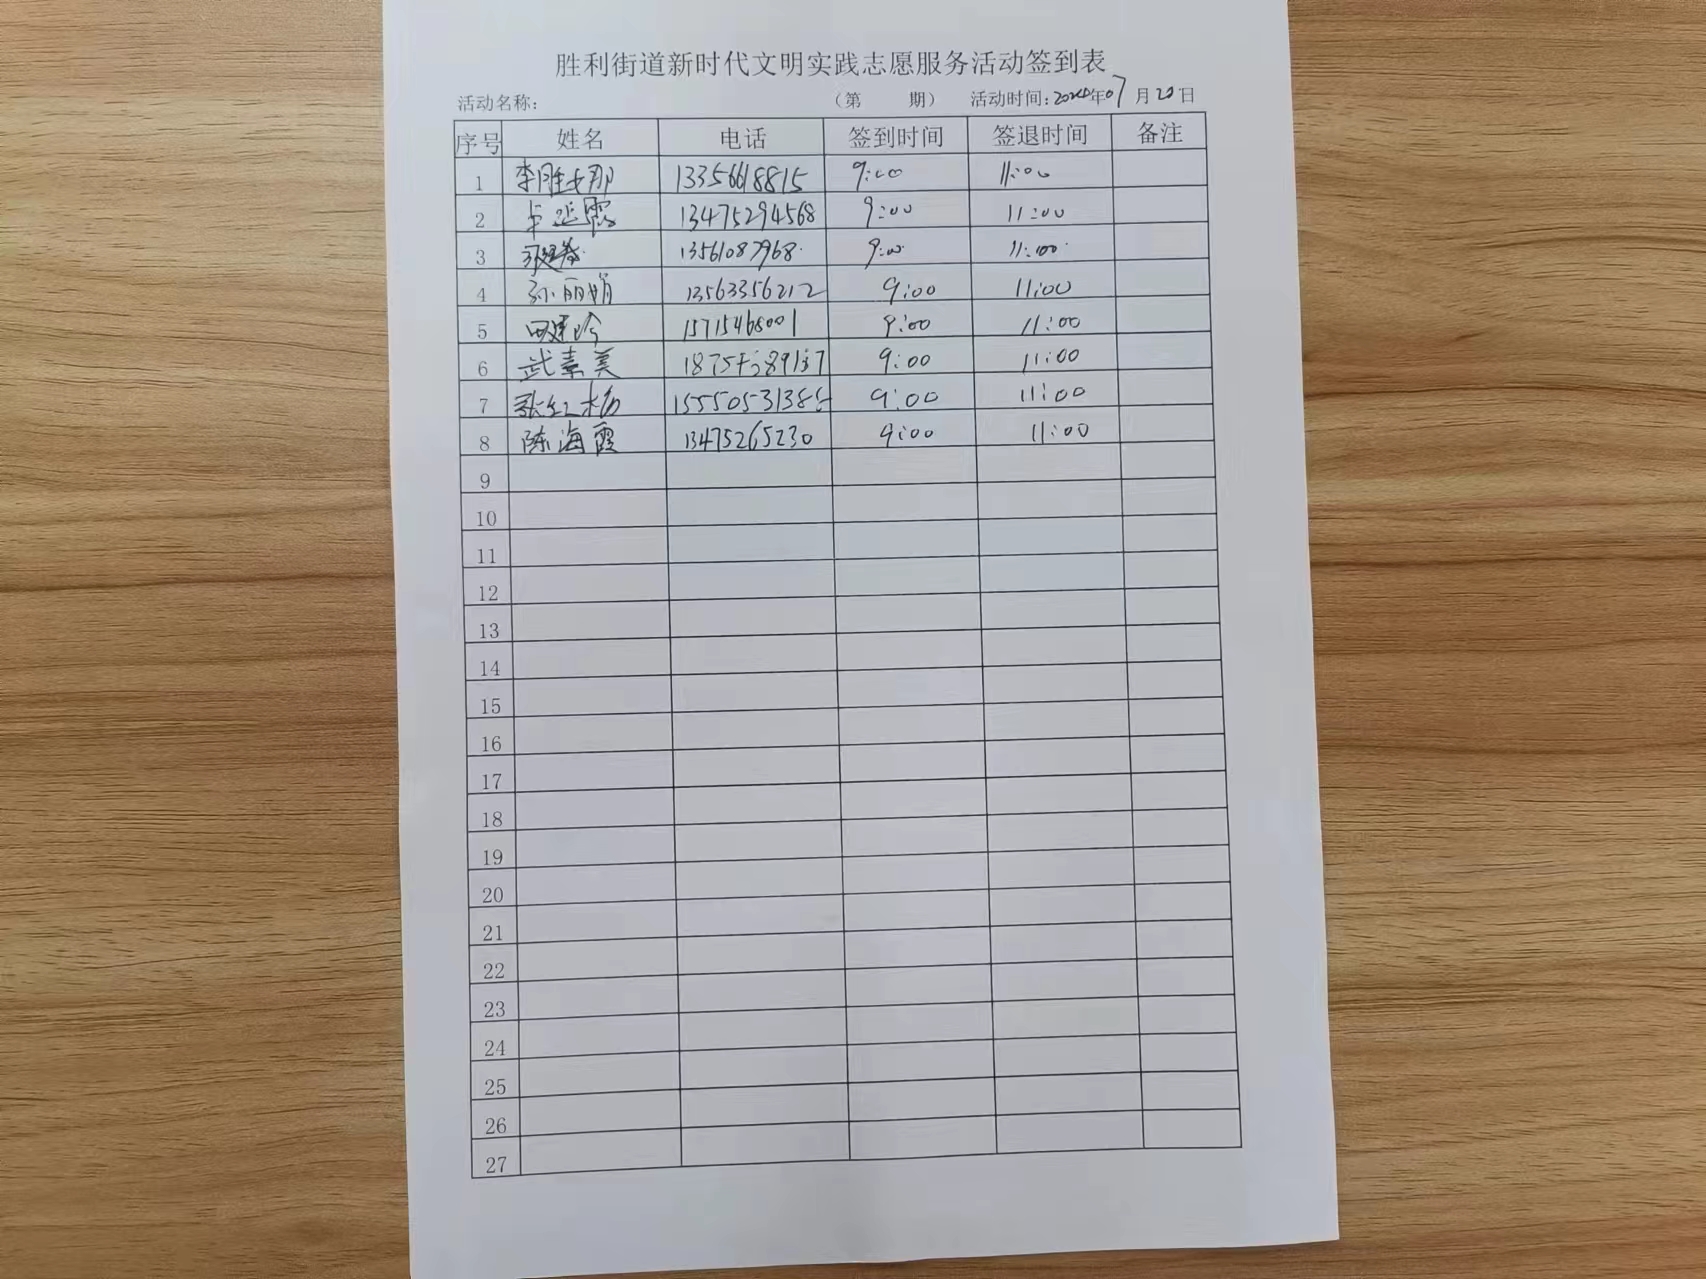 胜利街道新时代文明实践志愿服务活动签到表
活动名称： （第 期） 活动时间：2024年07月20日
序号 姓名 电话 签到时间 签退时间 备注
1 李胜男 13356618815 9:00 11:00
2 卓延霞 13475294568 9:00 11:00
3 13561087968 9:00 11:00
4 孙丽娟 13563356212 9:00 11:00
5 15715468001 9:00 11:00
6 武素美 9:00 11:00
7 张红杨 9:00 11:00
8 陈海霞 13475265230 9:00 11:00
9
10
11
12
13
14
15
16
17
18
19
20
21
22
23
24
25
26
27